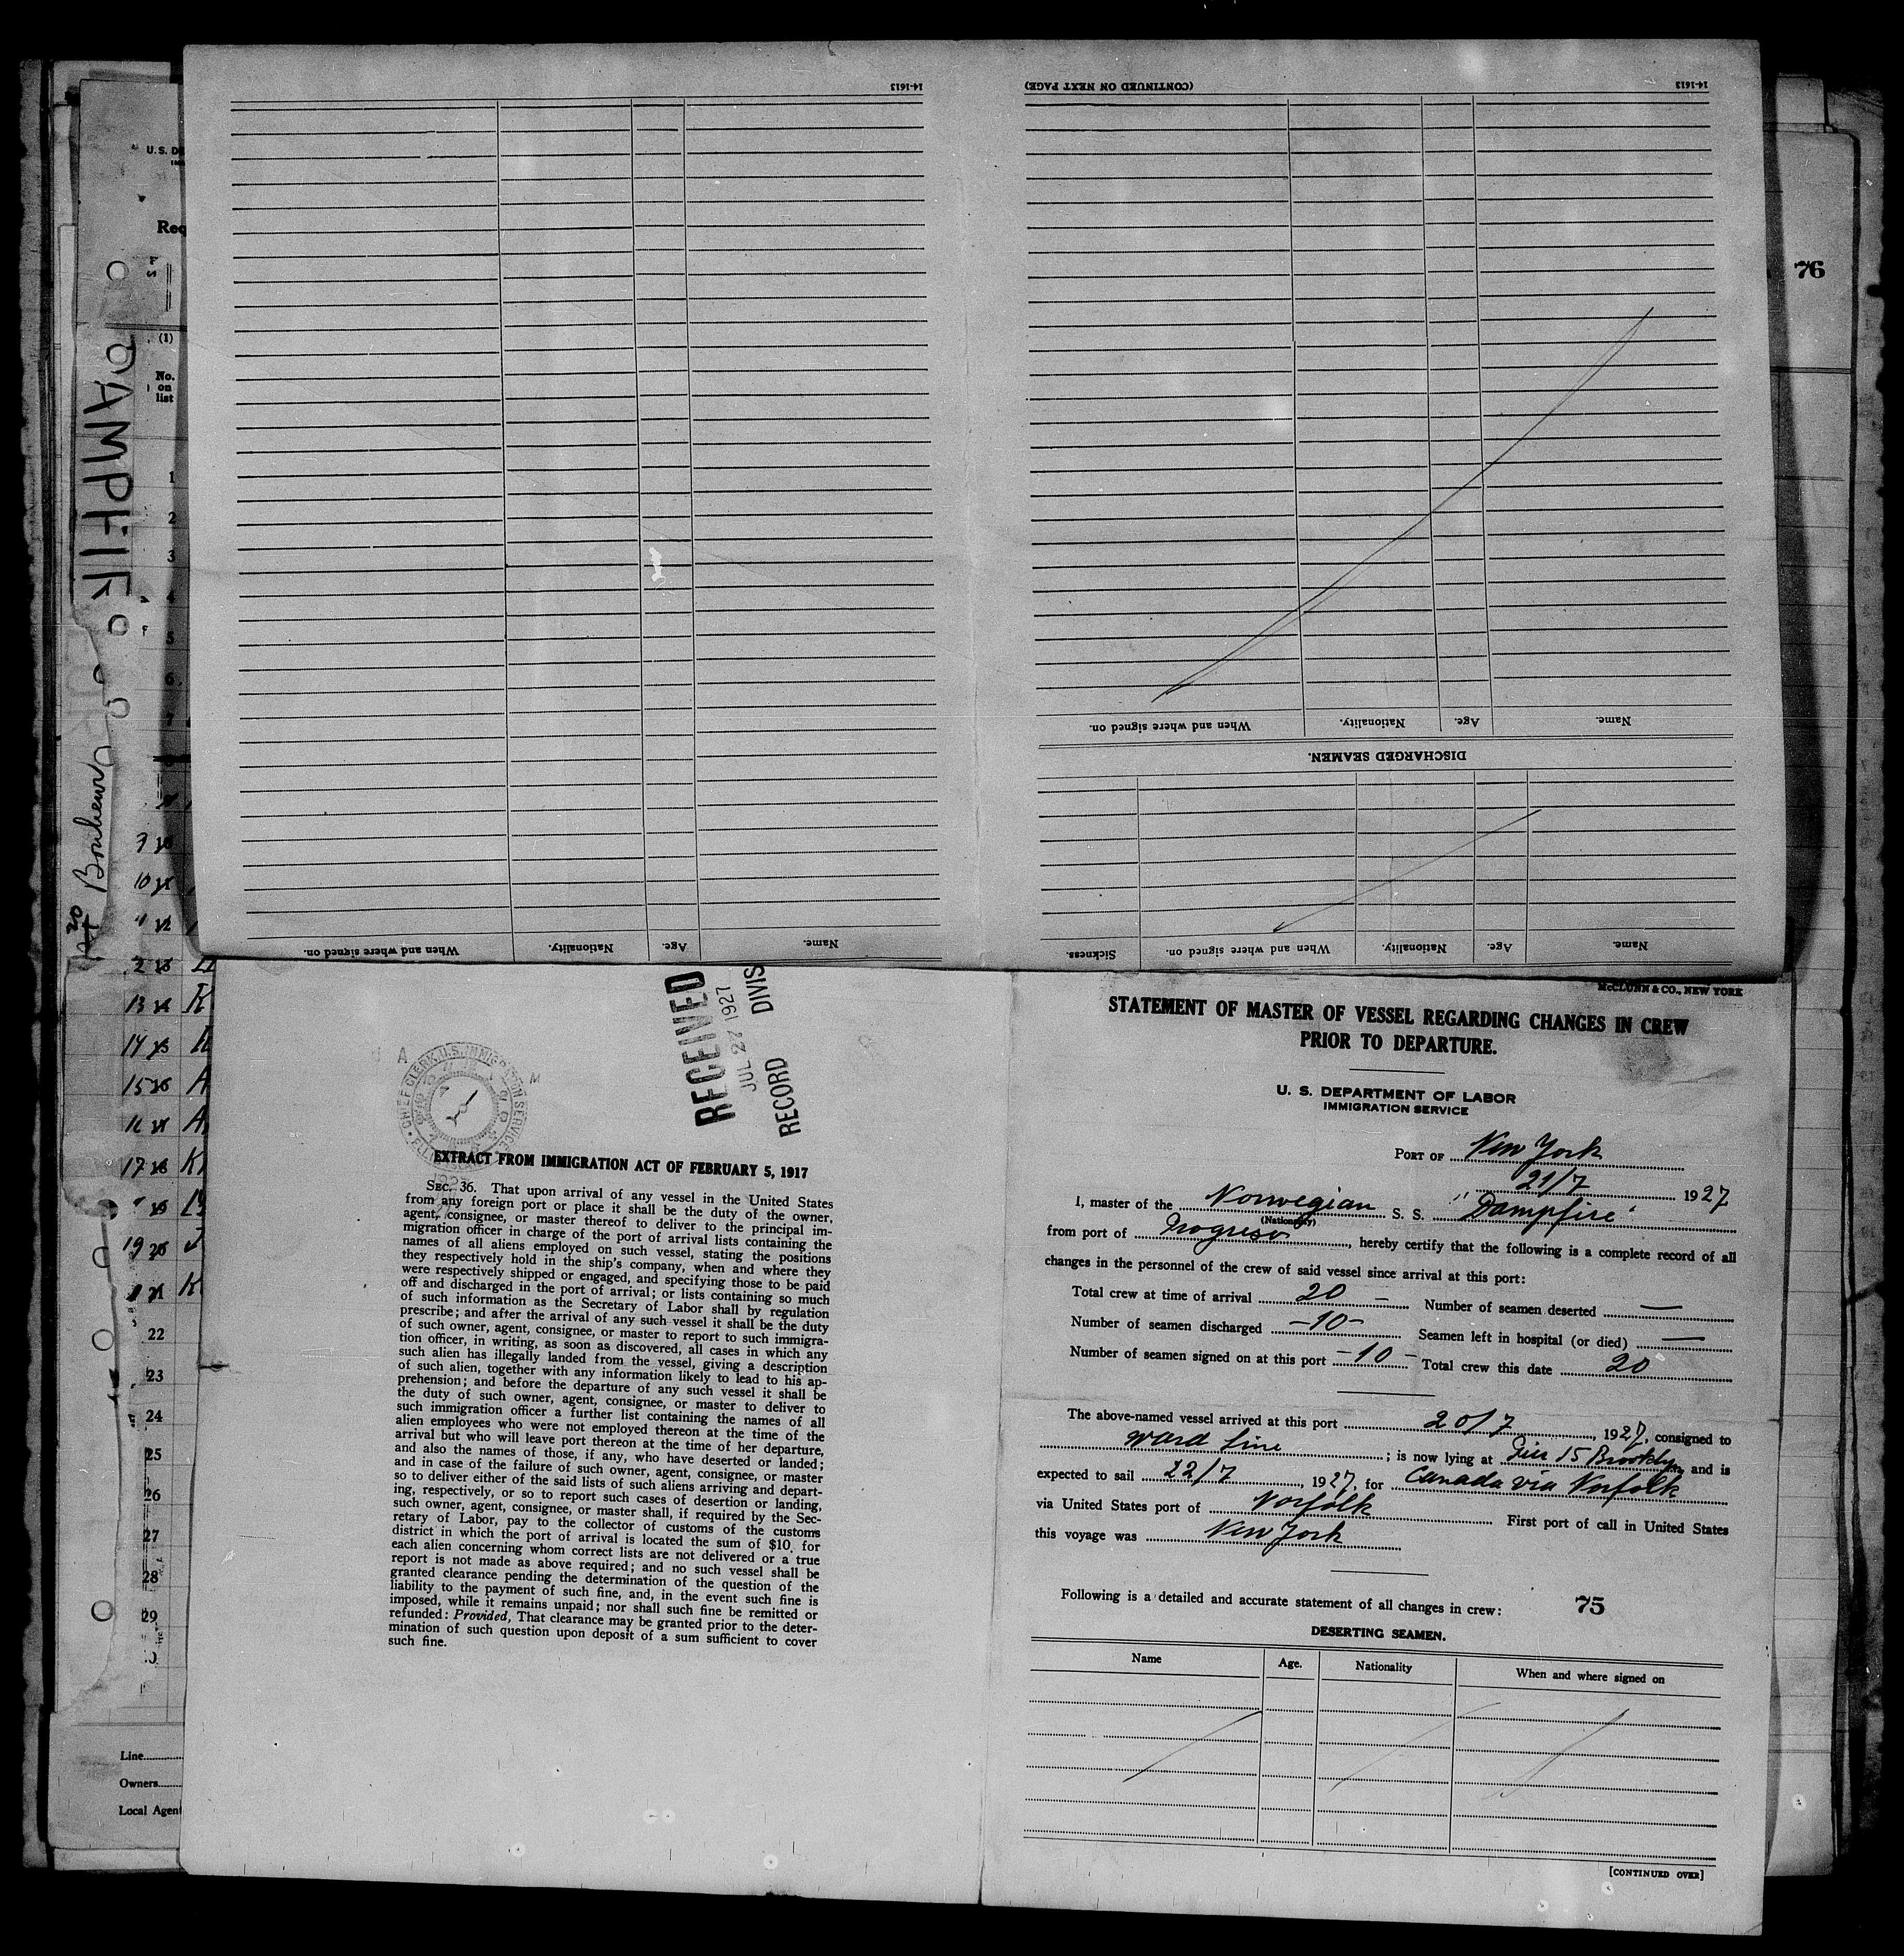 14-1613
(CONTINUED ON NEXT PAGE)
14-1613
When and where signed on.
Nationality.
Age.
Name.
DISCHARGED SEAMEN.
Name.
Age.
Nationality.
When and where signed on.
Name.
Age.
Nationality.
When and where signed on.
Sickness.
76
U. S. DE
Req
(1)
No.
on
list
1
2
3
4
5
6
7
DAMPFIR
22
23
24
25
26
27
28
29
Line
Owners
Local Agent
RECEIVED
JUL 27 1927
RECORD DIVIS
CHIEF CLERK, U.S. IMMIGRATION SERVICE
EXTRACT FROM IMMIGRATION ACT OF FEBRUARY 5, 1917
SEC. 36. That upon arrival of any vessel in the United States
from any foreign port or place it shall be the duty of the owner,
agent, consignee, or master thereof to deliver to the principal im-
migration officer in charge of the port of arrival lists containing the
names of all aliens employed on such vessel, stating the positions
they respectively hold in the ship's company, when and where they
were respectively shipped or engaged, and specifying those to be paid
off and discharged in the port of arrival; or lists containing so much
of such information as the Secretary of Labor shall by regulation
prescribe; and after the arrival of any such vessel it shall be the duty
of such owner, agent, consignee, or master to report to such immigra-
tion officer, in writing, as soon as discovered, all cases in which any
such alien has illegally landed from the vessel, giving a description
of such alien, together with any information likely to lead to his ap-
prehension; and before the departure of any such vessel it shall be
the duty of such owner, agent, consignee, or master to deliver to
such immigration officer a further list containing the names of all
alien employees who were not employed thereon at the time of the
arrival but who will leave port thereon at the time of her departure,
and also the names of those, if any, who have deserted or landed;
and in case of the failure of such owner, agent, consignee, or master
so to deliver either of the said lists of such aliens arriving and depart-
ing, respectively, or so to report such cases of desertion or landing,
such owner, agent, consignee, or master shall, if required by the Sec-
retary of Labor, pay to the collector of customs of the customs
district in which the port of arrival is located the sum of $10. for
each alien concerning whom correct lists are not delivered or a true
report is not made as above required; and no such vessel shall be
granted clearance pending the determination of the question of the
liability to the payment of such fine, and, in the event such fine is
imposed, while it remains unpaid; nor shall such fine be remitted or
refunded: Provided, That clearance may be granted prior to the deter-
mination of such question upon deposit of a sum sufficient to cover
such fine.
McCLUNN & CO., NEW YORK
STATEMENT OF MASTER OF VESSEL REGARDING CHANGES IN CREW
PRIOR TO DEPARTURE.
U. S. DEPARTMENT OF LABOR
IMMIGRATION SERVICE
PORT OF New York
21/7 1927
I, master of the Norwegian S. S. "Dampfire"
(Nationality)
from port of Progreso, hereby certify that the following is a complete record of all
changes in the personnel of the crew of said vessel since arrival at this port:
Total crew at time of arrival 20 — Number of seamen deserted —
Number of seamen discharged -10- Seamen left in hospital (or died) —
Number of seamen signed on at this port -10- Total crew this date 20
The above-named vessel arrived at this port 20/7, 1927, consigned to
Ward Line; is now lying at Pier 15 Brooklyn, and is
expected to sail 22/7, 1927, for Canada via Norfolk
via United States port of Norfolk First port of call in United States
this voyage was New York
Following is a detailed and accurate statement of all changes in crew: 75
DESERTING SEAMEN.
Name Age. Nationality When and where signed on
[CONTINUED OVER]